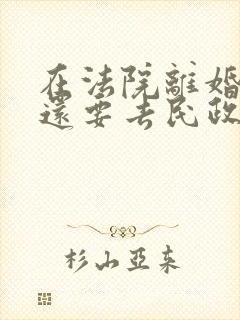 在法院離婚
還要去民政
杉山亞来